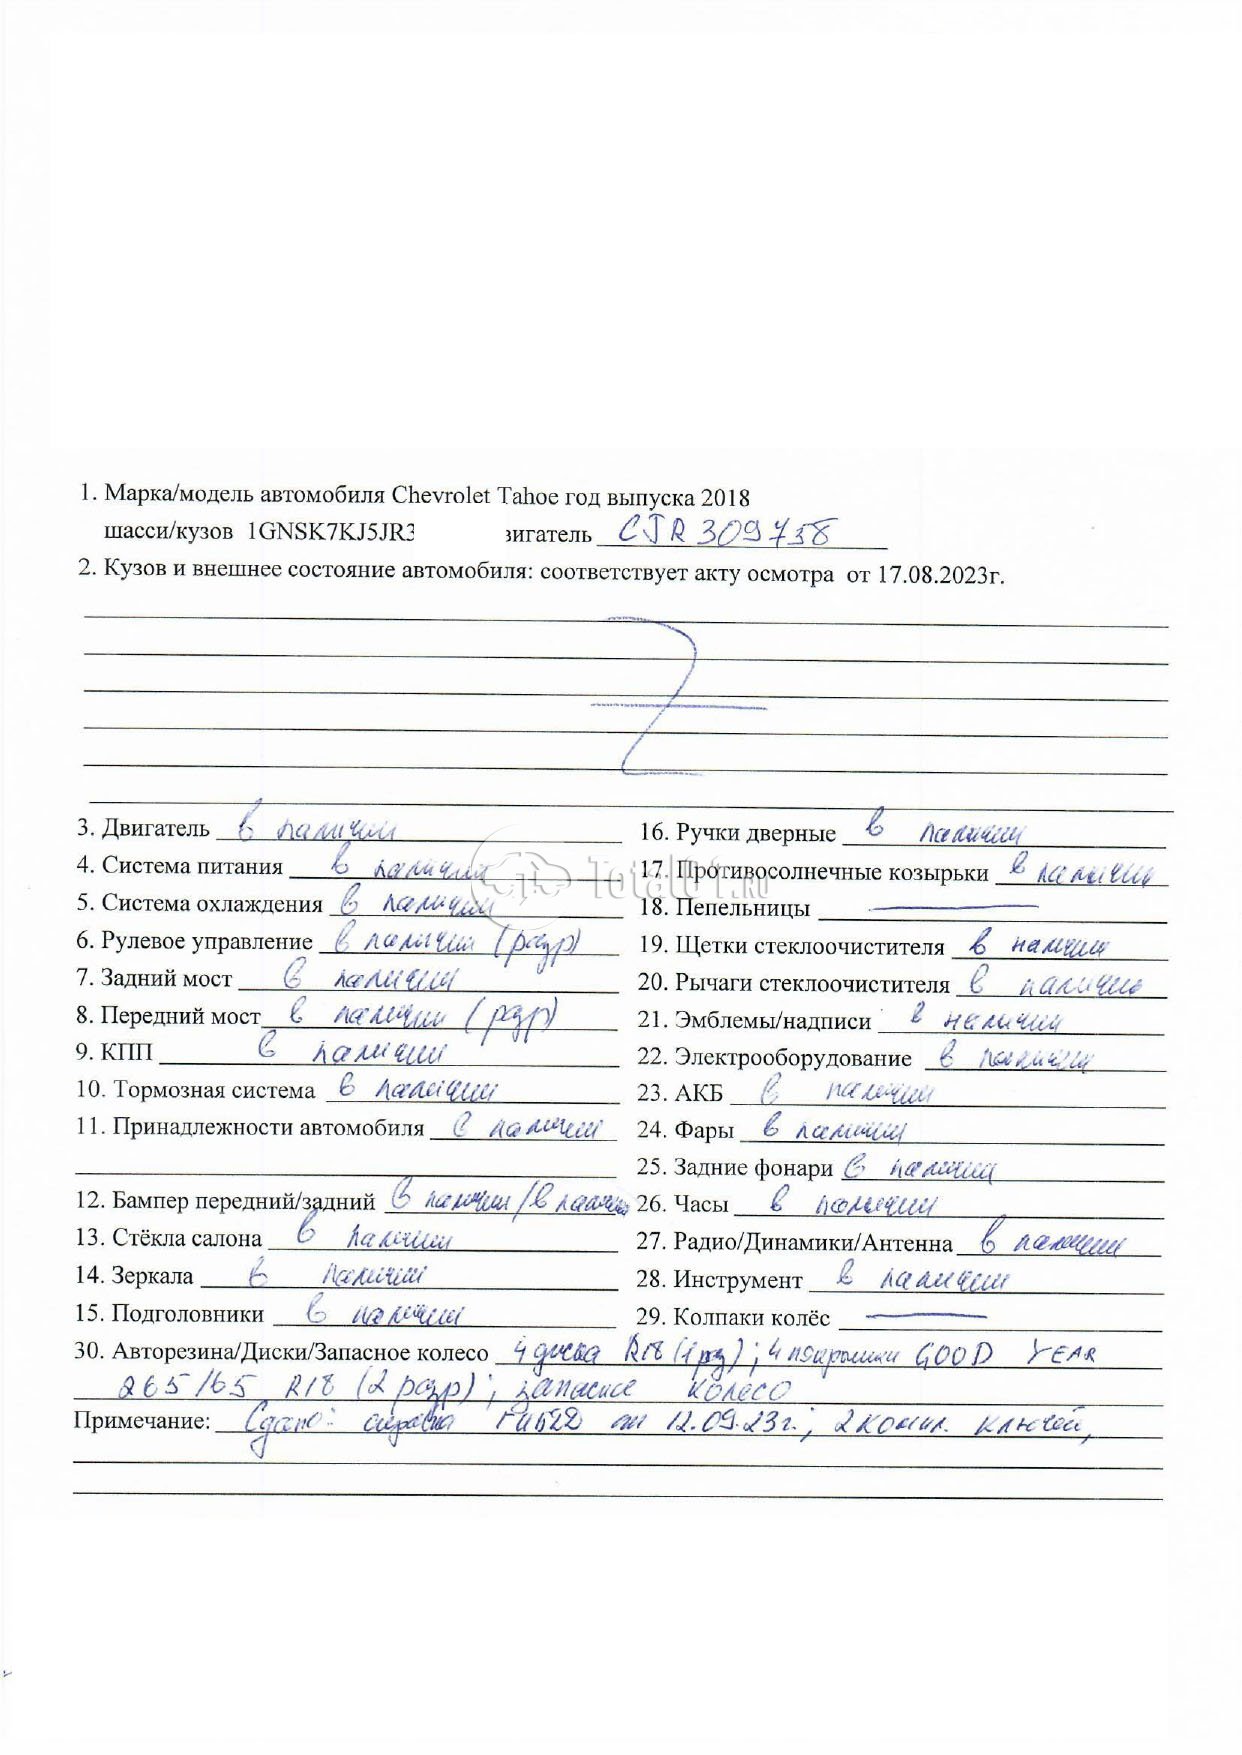 1. Марка/модель автомобиля Chevrolet Tahoe год выпуска 2018
шасси/кузов 1GNSK7KJ5JR3 вигатель CJR309738
2. Кузов и внешнее состояние автомобиля: соответствует акту осмотра от 17.08.2023г.
Z
3. Двигатель в наличии
4. Система питания в наличии
5. Система охлаждения в наличии
6. Рулевое управление в наличии (разр)
7. Задний мост в наличии
8. Передний мост в наличии (разр)
9. КПП в наличии
10. Тормозная система в наличии
11. Принадлежности автомобиля в наличии
12. Бампер передний/задний в наличии/в наличии
13. Стёкла салона в наличии
14. Зеркала в наличии
15. Подголовники в наличии
16. Ручки дверные в наличии
17. Противосолнечные козырьки в наличии
18. Пепельницы —
19. Щетки стеклоочистителя в наличии
20. Рычаги стеклоочистителя в наличии
21. Эмблемы/надписи в наличии
22. Электрооборудование в наличии
23. АКБ в наличии
24. Фары в наличии
25. Задние фонари в наличии
26. Часы в наличии
27. Радио/Динамики/Антенна в наличии
28. Инструмент в наличии
29. Колпаки колёс —
30. Авторезина/Диски/Запасное колесо 4 диска R18 (1 рз); 4 покрышки GOOD YEAR
265/65 R18 (2 разр); запасное колесо
Примечание: Сдано: справка ГИБДД от 12.09.23г.; 2 компл. ключей,
Total01.RU